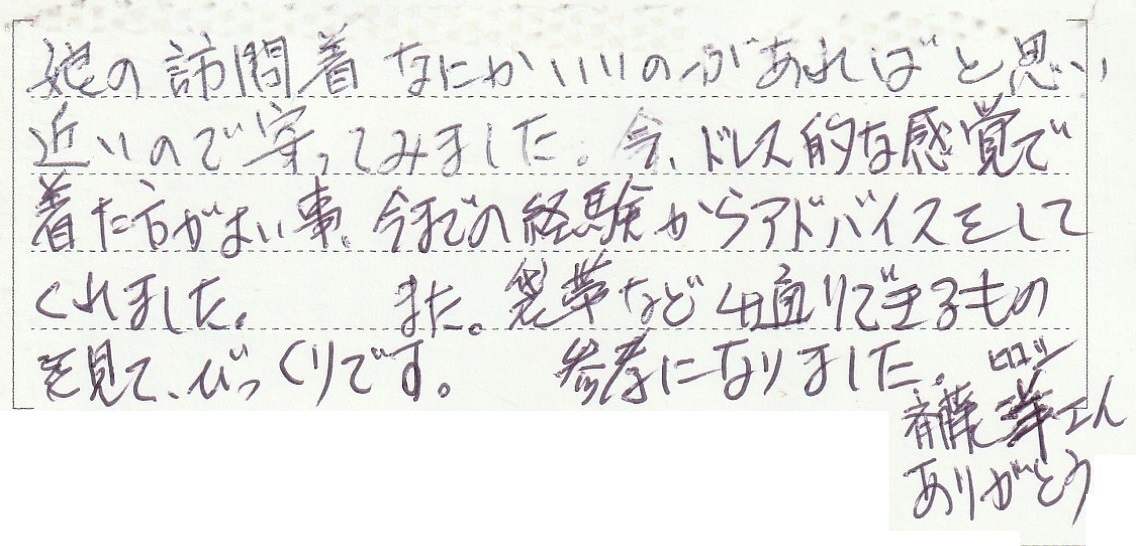 娘の訪問着なにかいいのがあればと思い
近いので寄ってみました。今、ドレス的な感覚で
着た方がよい事、今までの経験からアドバイスをして
くれました。 また。袋帯など4通りできるもの
を見て、びっくりです。 参考になりました。
ヒロシ
斉藤洋さん
ありがとう